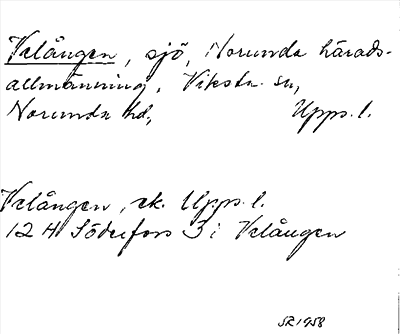 Velången, sjö, Norunda härads-
allmänning, Viksta sn,
Norunda hd, Upps. l.
Velången, ek. Upps. l.
12 H Söderfors 3 i Velången
SR 1958